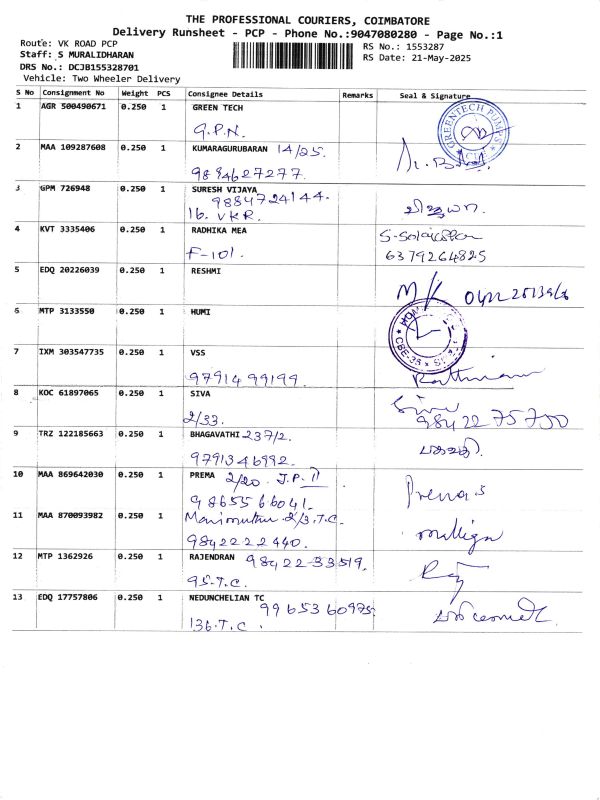 THE PROFESSIONAL COURIERS, COIMBATORE
Delivery Runsheet - PCP - Phone No.:9047080280 - Page No.:1
Route: VK ROAD PCP
RS No.: 1553287
Staff: S MURALIDHARAN
RS Date: 21-May-2025
DRS No.: DCJB155328701
Vehicle: Two Wheeler Delivery
S No Consignment No Weight PCS Consignee Details Remarks Seal & Signature
1 AGR 500490671 0.250 1 GREEN TECH
G.P.N.
GREENTECH PUMPS
2 MAA 109287608 0.250 1 KUMARAGURUBARAN 14/25.
9894627277.
3 GPM 726948 0.250 1 SURESH VIJAYA
9884724144.
16. VKR.
விஜயா.
4 KVT 3335406 0.250 1 RADHIKA MEA
F-101.
6379264825
5 EDQ 20226039 0.250 1 RESHMI
MK
6 MTP 3133550 0.250 1 HUMI
CBE-35
7 IXM 303547735 0.250 1 VSS
9791499199.
8 KOC 61897065 0.250 1 SIVA
2/33.
Siva
9842275750
9 TRZ 122185663 0.250 1 BHAGAVATHI 237/2.
9791346992.
10 MAA 869642030 0.250 1 PREMA 2/20. J.P. II
9865566041.
Prema.S
11 MAA 870093982 0.250 1 Manimuthu 2/3.T.C.
9842222440.
12 MTP 1362926 0.250 1 RAJENDRAN 98422-33519.
95-T.C.
Raj
13 EDQ 17757806 0.250 1 NEDUNCHELIAN TC
9965360975.
136.T.C.